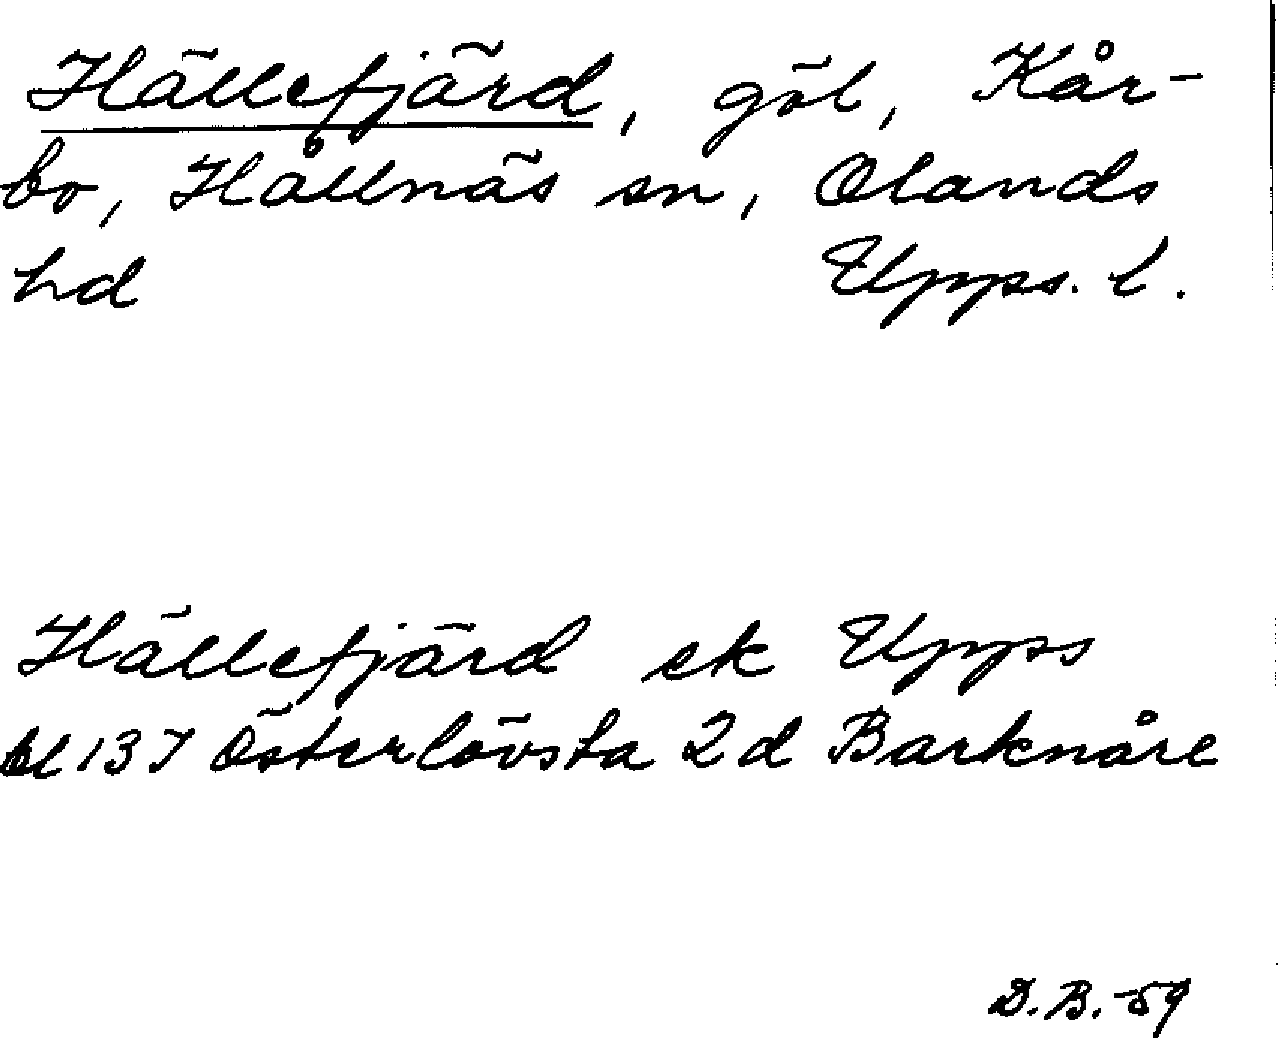 Hällefjärd, göl, Kår-
bo, Hållnäs sn, Olands
hd Upps. l.
Hällefjärd ek Upps
bl 137 Österlövsta 2d Barknåre
D.B. -59